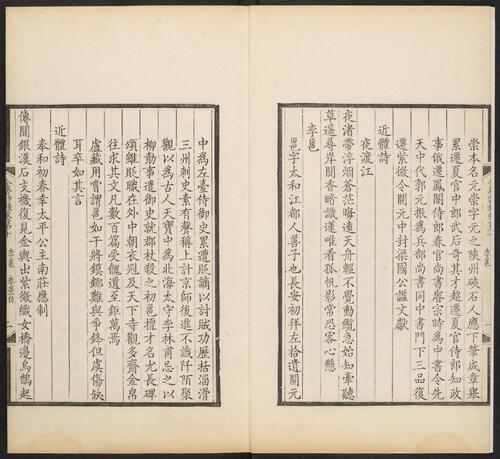 崇本名元崇字元之陝州硤石人應下筆成章舉
累遷夏官中郎武后奇其才超遷夏官侍郎知政
事俄遷鳳閣侍郎春官尚書睿宗時為中書令先
天中代郭元振為兵部尚書同中書門下三品復
遷紫微令開元中封梁國公諡文獻
近體詩
夜渡江
夜渚帶浮烟蒼茫晦遠天舟輕不覺動纜急始知牽聽
草遥尋岸聞香暗識蓮唯看孤帆影常恐客心懸
李邕
邕字太和江都人善子也長安初拜左拾遺開元
中為左臺侍御史累遷貶謫以計賊功歷括淄滑
三州刺史素有聲稱上計京師後進不識阡陌聚
觀以為古人天寶中為北海太守李林甫忌之以
柳勣事遣御史就郡杖殺之初邕擅才名尤長碑
頌雖貶職在外中朝衣冠及天下寺觀多齎金帛
往求其文凡數百篇受餽遺至鉅萬焉
盧藏用嘗謂邕如干將鏌鋣難與爭鋒但虞傷缺
耳卒如其言
近體詩
奉和初春幸太平公主南莊應制
傳聞銀漢石支機復見金輿出紫微織女橋邊烏鵲起